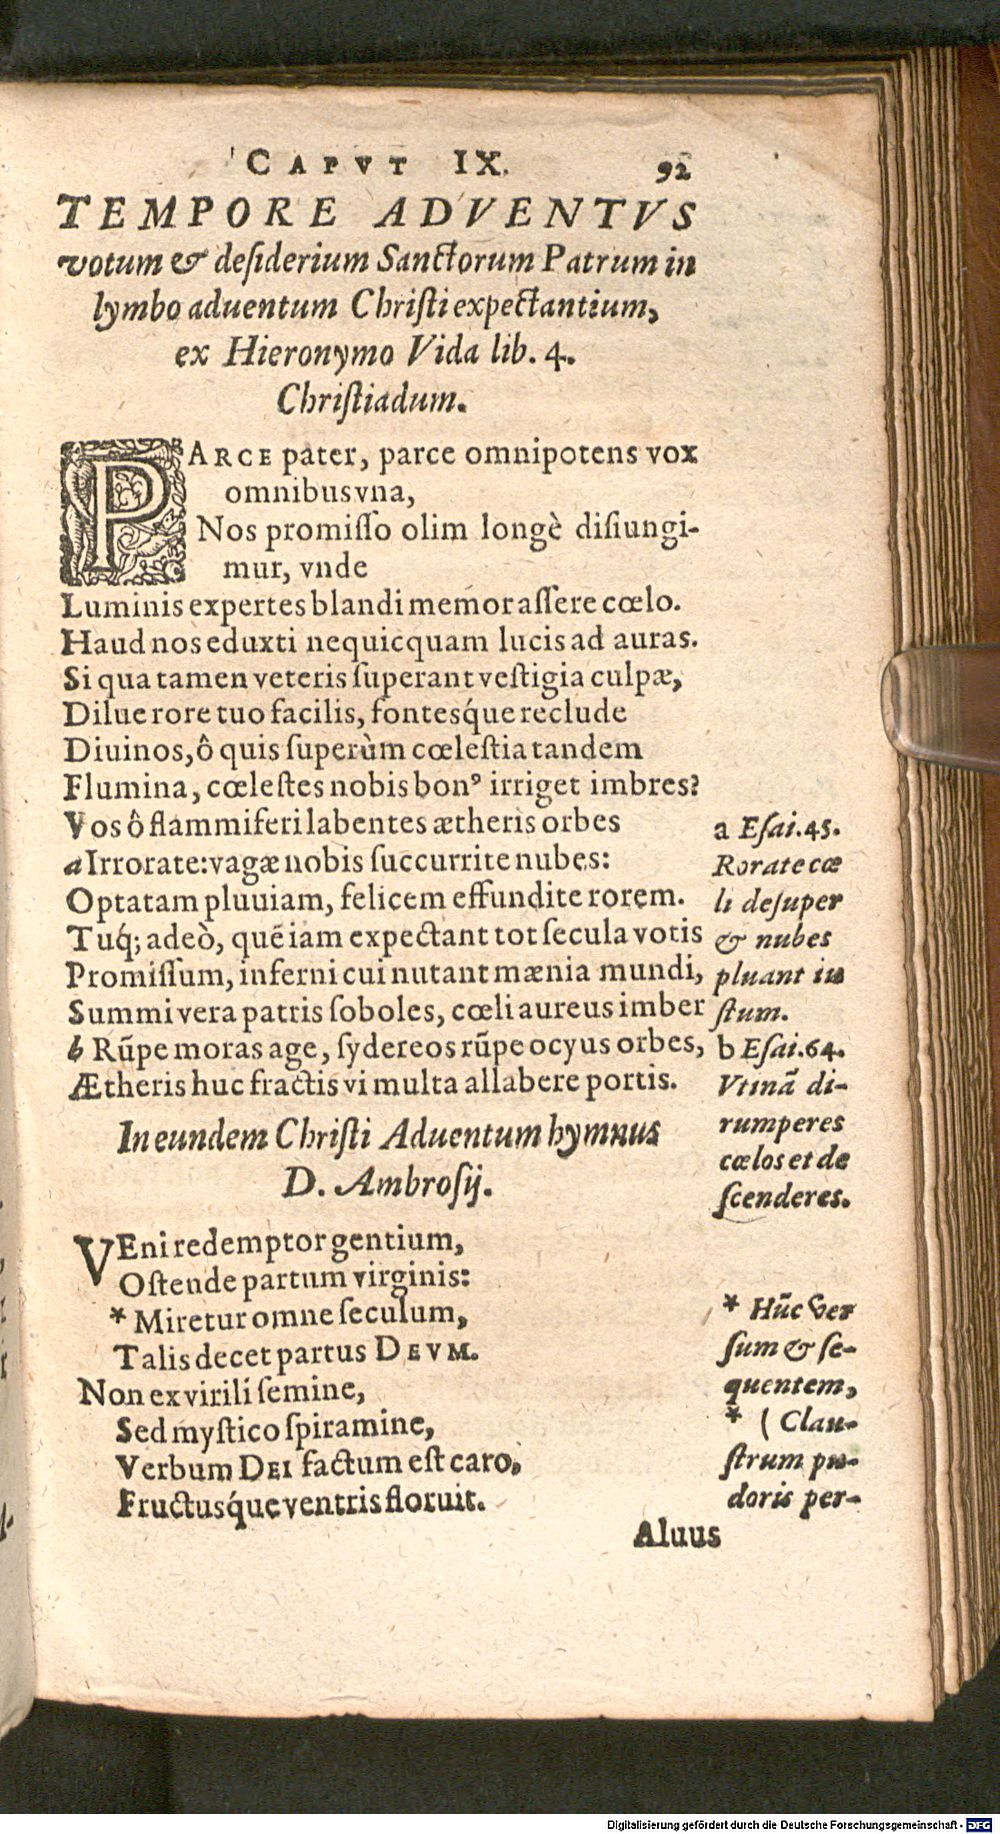 CAPVT IX. 92
TEMPORE ADVENTVS
votum & desiderium Sanctorum Patrum in
lymbo aduentum Christi expectantium,
ex Hieronymo Vida lib. 4.
Christiadum.
PARCE pater, parce omnipotens vox
omnibus vna,
Nos promisso olim longè disiungi-
mur, vnde
Luminis expertes blandi memor assere cœlo.
Haud nos eduxti nequicquam lucis ad auras.
Si qua tamen veteris superant vestigia culpæ,
Dilue rore tuo facilis, fontesq́ue reclude
Diuinos, ô quis superùm cœlestia tandem
Flumina, cœlestes nobis bonꝰ irriget imbres?
Vos ô flammiferi labentes ætheris orbes
a Irrorate: vagæ nobis succurrite nubes:
Optatam pluuiam, felicem effundite rorem.
Tuq́; adeò, quē iam expectant tot secula votis
Promissum, inferni cui nutant mænia mundi,
Summi vera patris soboles, cœli aureus imber
b Rūpe moras age, sydereos rūpe ocyus orbes,
Ætheris huc fractis vi multa allabere portis.
a Esai. 45.
Rorate cœ
li desuper
& nubes
pluant iu
stum.
b Esai. 64.
Vtinā di-
rumperes
cœlos et de
scenderes.
In eundem Christi Aduentum hymnus
D. Ambrosij.
VEni redemptor gentium,
Ostende partum virginis:
* Miretur omne seculum,
Talis decet partus DEVM.
Non ex virili semine,
Sed mystico spiramine,
Verbum DEI factum est caro,
Fructusq́ue ventris floruit.
* Hūc ver
sum & se-
quentem,
* ( Clau-
strum pu-
doris per-
Aluus
Digitalisierung gefördert durch die Deutsche Forschungsgemeinschaft - DFG